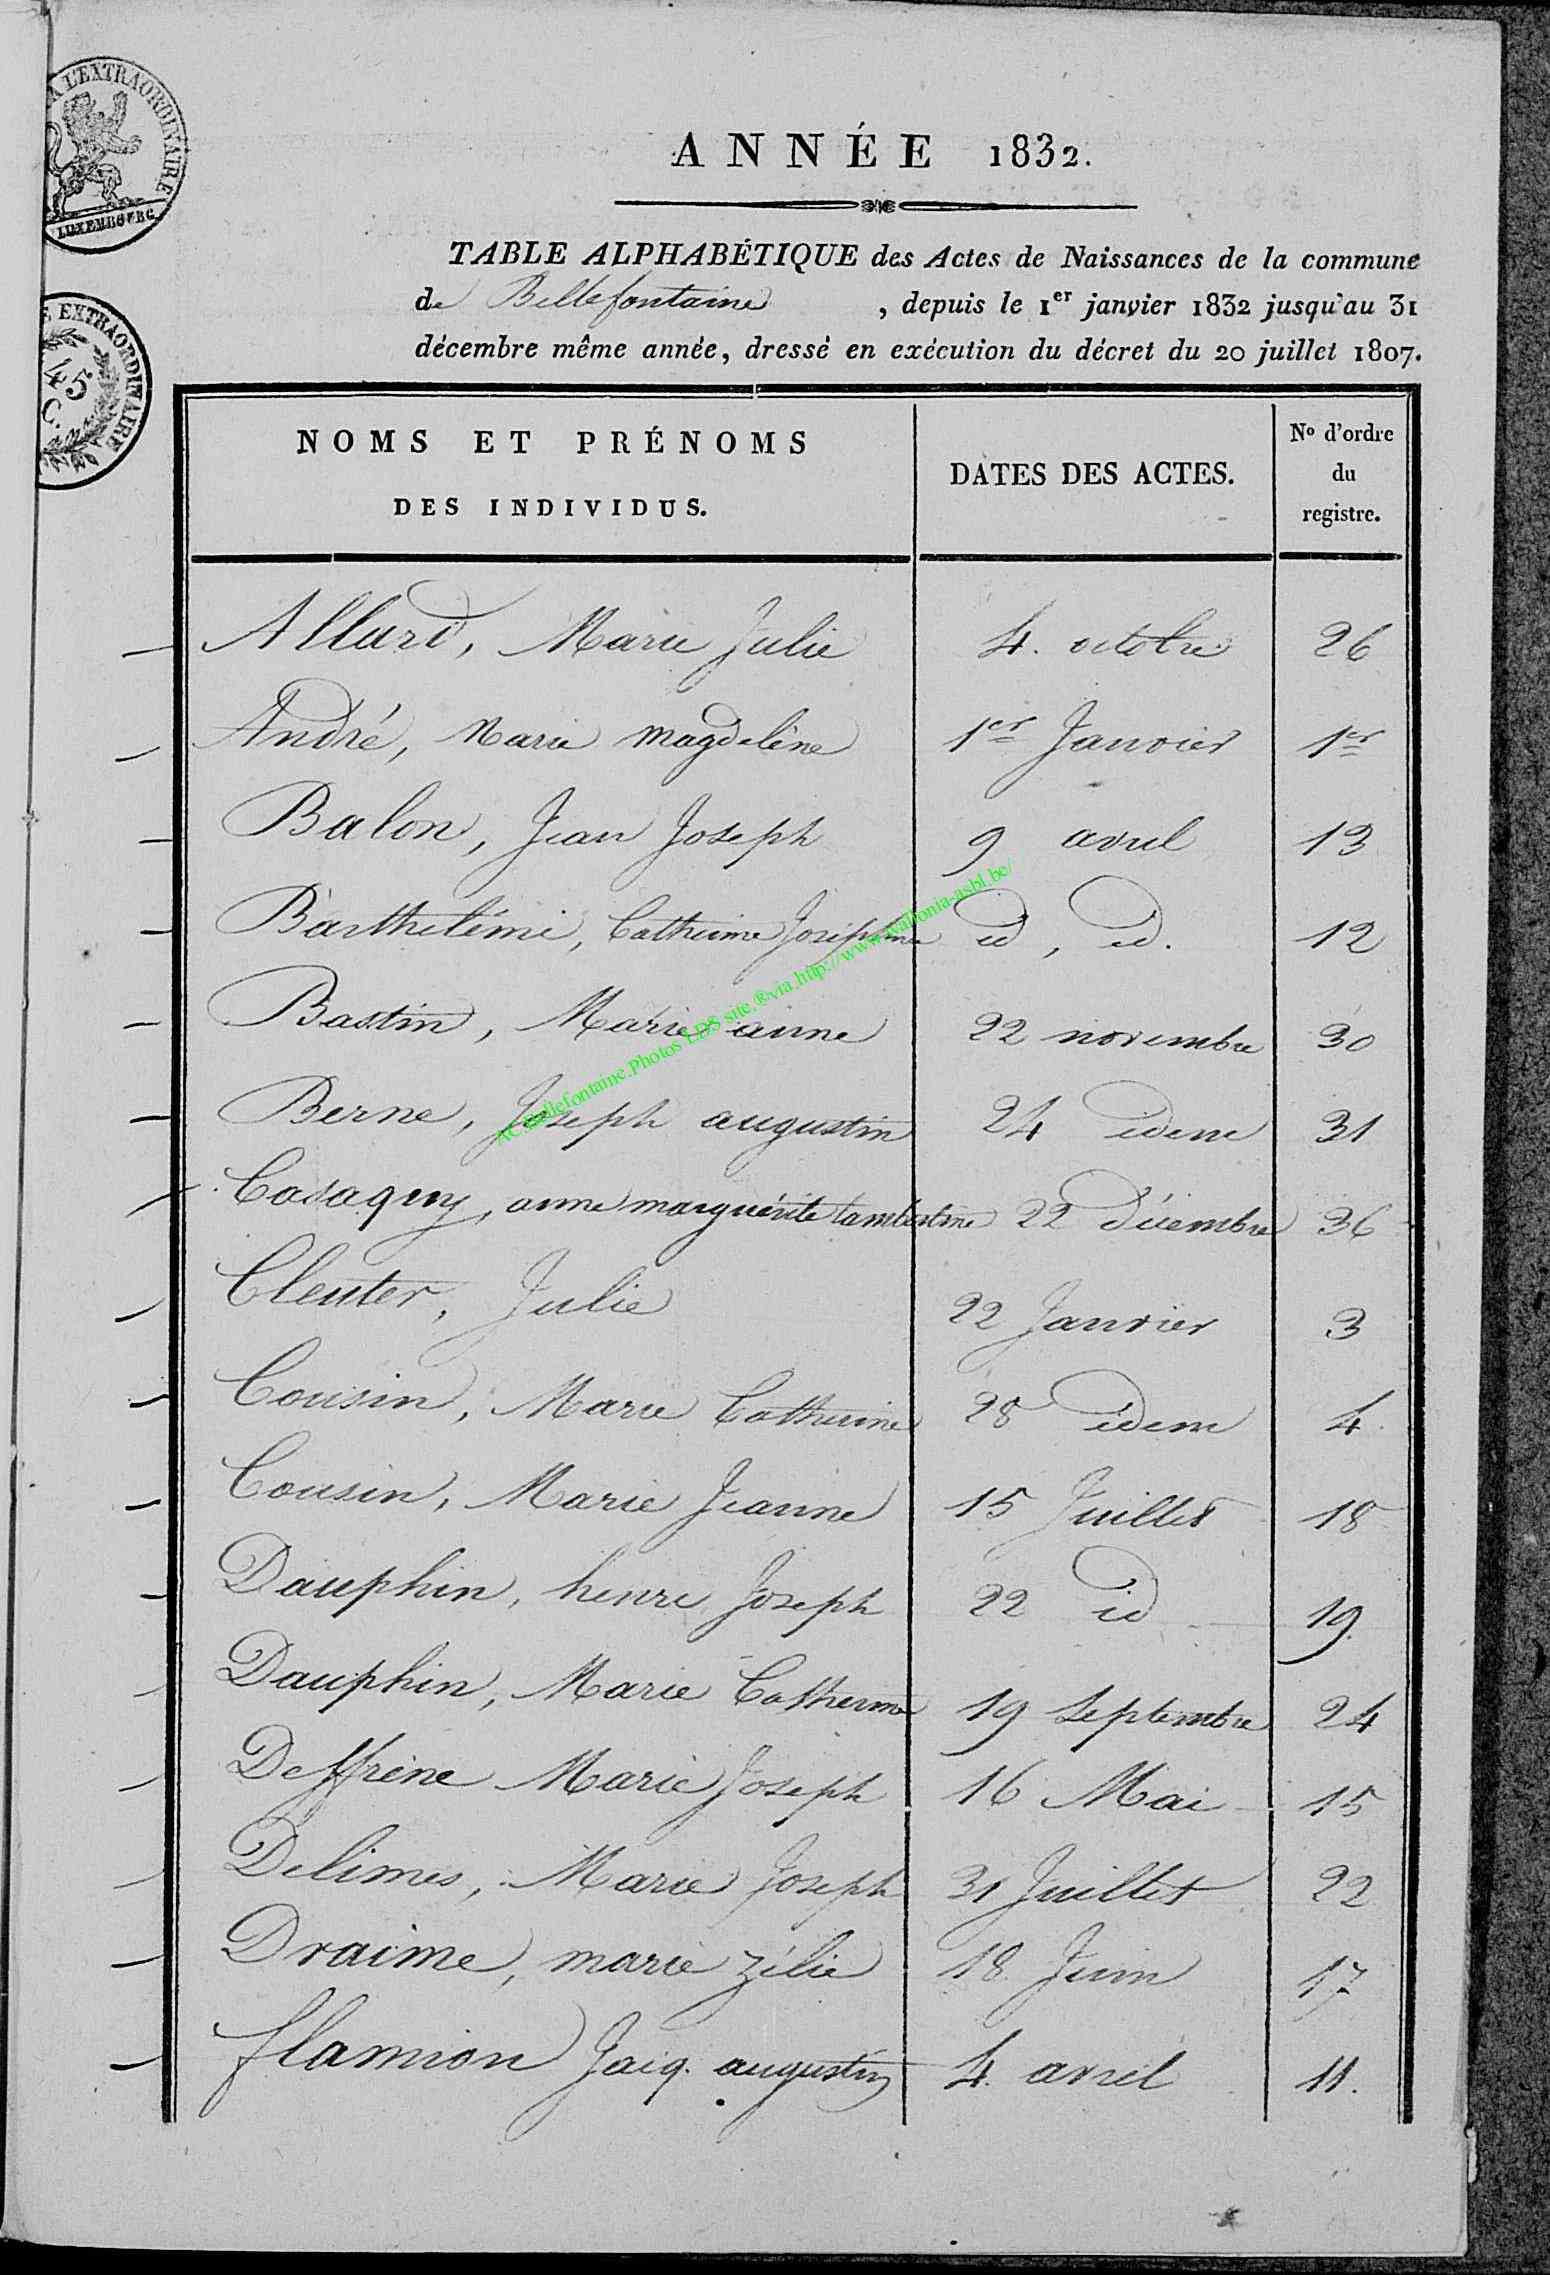 A L'EXTRAORDINAIRE
LUXEMBOURG
E EXTRAORDINAIRE
45
C.
ANNÉE 1832.
TABLE ALPHABÉTIQUE des Actes de Naissances de la commune
de Bellefontaine, depuis le 1er janvier 1832 jusqu'au 31
décembre même année, dressé en exécution du décret du 20 juillet 1807.
NOMS ET PRÉNOMS
DES INDIVIDUS.
DATES DES ACTES.
No d'ordre
du
registre.
Allard, Marie Julie 4. octobre 26
André, Marie Magdelène 1er Janvier 1er
Balon, Jean Joseph 9 avril 13
Barthelémi, Catherine Josephine id, id. 12
Bastin, Marie anne 22 novembre 30
Berne, Joseph augustin 24 idem 31
Casaquy, anne marguérite lambertine 22 décembre 36
Cleuter, Julie 22 Janvier 3
Cousin, Marie Catherine 28 idem 4.
Cousin, Marie Jeanne 15 Juillet 18
Dauphin, henri Joseph 22 id 19.
Dauphin, Marie Catherine 19 Septembre 24
Deffrène Marie Joseph 16 Mai 15
Delimes, Marie Joseph 31 Juillet 22
Draime, marie zélie 18 Juin 17
flamion Jacq. augustin 4. avril 11.
AC.Bellefontaine.Photos LDS site.®via.http://www.wallonia-asbl.be/